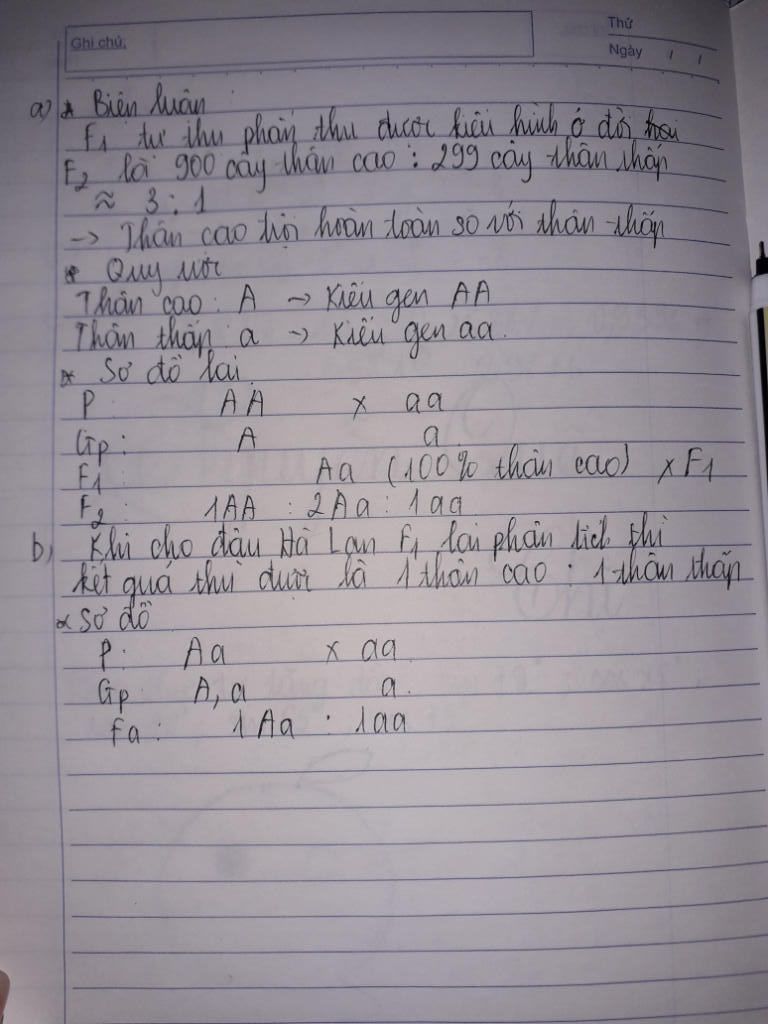 Ghi chú:
Thứ
Ngày / /
a) * Biện luận
F1 tự thụ phấn thu được kiểu hình ở đời
F2 là 900 cây thân cao : 299 cây thân thấp
≈ 3 : 1
-> Thân cao trội hoàn toàn so với thân thấp
* Quy ước
Thân cao : A -> Kiểu gen AA
Thân thấp : a -> Kiểu gen aa.
* Sơ đồ lai
P : AA x aa
Gp : A a
F1 : Aa (100% thân cao) x F1
F2 : 1AA : 2Aa : 1aa
b) Khi cho đậu Hà Lan F1 lai phân tích thì
kết quả thu được là 1 thân cao : 1 thân thấp
* Sơ đồ
P : Aa x aa
Gp A, a a.
Fa : 1Aa : 1aa